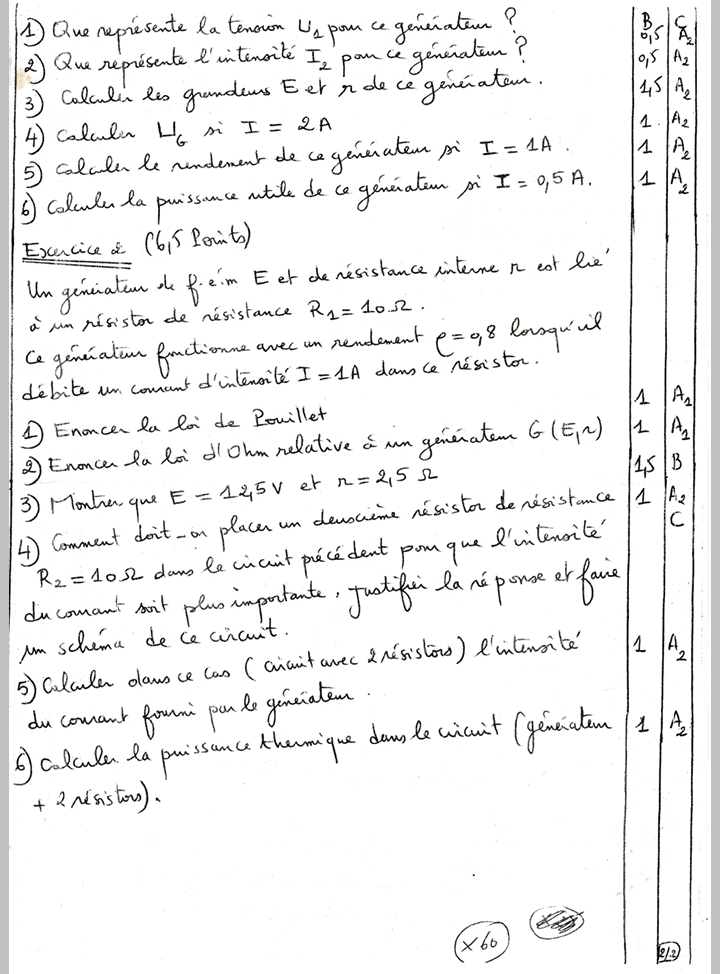 B C
1) Que représente la tension U1 pour ce générateur ? 0,5 A2
2) Que représente l'intensité I2 pour ce générateur ? 0,5 A2
3) Calculer les grandeurs E et r de ce générateur. 1,5 A2
4) Calculer UG si I = 2A 1 A2
5) Calculer le rendement de ce générateur si I = 1A. 1 A2
6) Calculer la puissance utile de ce générateur si I = 0,5 A. 1 A2
Exercice 2 (6,5 Points)
Un générateur de f.é.m E et de résistance interne r est lié
à un résistor de résistance R1 = 10 Ω.
Ce générateur fonctionne avec un rendement ρ = 0,8 lorsqu'il
débite un courant d'intensité I = 1A dans ce résistor.
1) Enoncer la loi de Pouillet 1 A1
2) Enoncer la loi d'Ohm relative à un générateur G (E,r) 1 A1
3) Montrer que E = 12,5 V et r = 2,5 Ω 1,5 B
4) Comment doit-on placer un deuxième résistor de résistance 1 A2
R2 = 10 Ω dans le circuit précédent pour que l'intensité C
du courant soit plus importante, Justifier la réponse et faire
un schéma de ce circuit.
5) Calculer dans ce cas (circuit avec 2 résistors) l'intensité 1 A2
du courant fourni par le générateur.
6) Calculer la puissance thermique dans le circuit (générateur 1 A2
+ 2 résistors).
×60
2/2